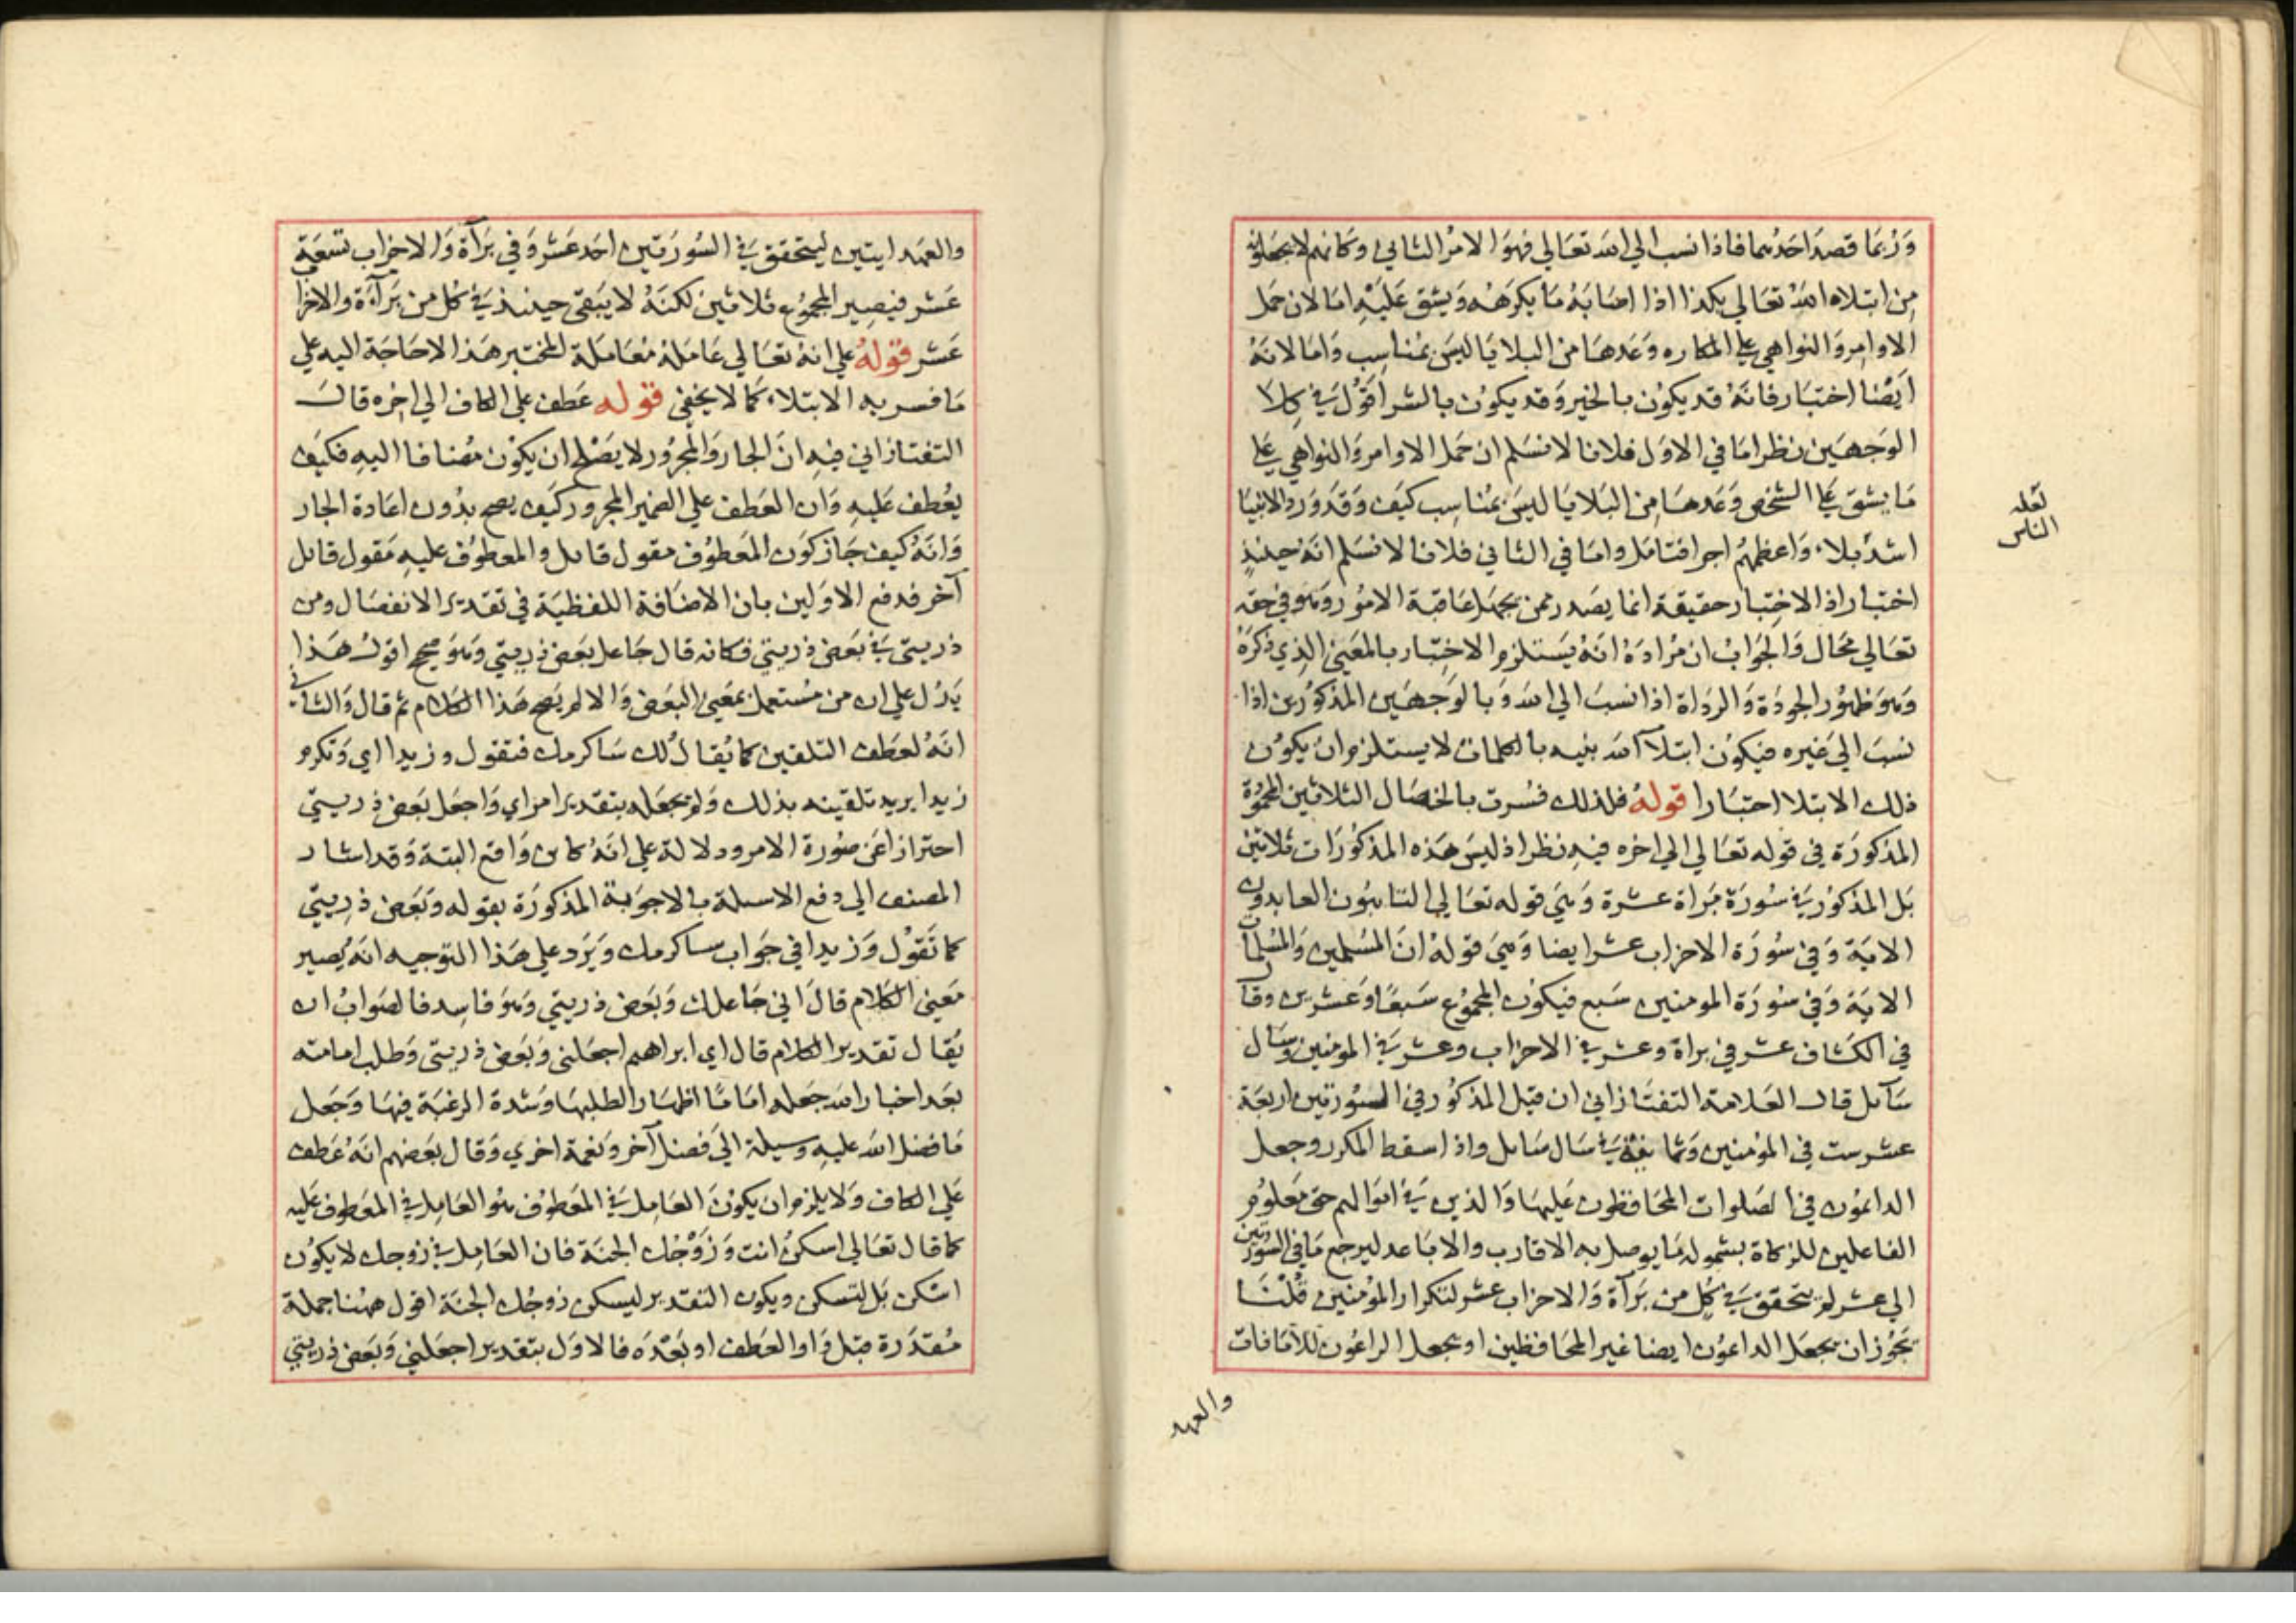 وَرُبمَا قصدَ احَدُهما فاذا نسب الي الله تعَالي فهوَ الامرُ الثاني وكانهم لا يجعلونه
مِن ابتلاه اللهُ تعَالي بكذا اذا اصَابَهُ مَا يكرَهُه وَيشق عَليْهِ امَا لان حمَل
الاوامِر وَالنواهي علي المكاره وَعَدهَا من البلايَا ليسَ بمُناسِب وَامَا لانهُ
ايَضًا اختبَار فانهُ قد يكوُن بالخير وَقد يكوُن بالشر اقوُل في كِلا
الوَجهَين نظر امَا في الاول فلانا لا نسَلم ان حَمل الاوامر وَالنواهي علي
مَا يشق علَي الشخص وَعَدهَا مِن البَلايَا ليسَ بمُناسِب كيَف وَقد وَرد الانبيَا
اشد بلاء وَاعظمهُم اجرا فتامَل وامَا في الثاني فلانا لا نسَلم انهُ حينئذٍ
اختبارا اذ الاختِبار حقيقة انما يصَدر ممن يجهَل عَاقبة الامُور وَهو في حقه
تعَالي محَال وَالجوَابُ ان مُرادهُ انهُ يَستلزم الاختِبار بالمعَني الذِي ذكرَهُ
وَهوَ ظهُور الجودَة وَالردَاة اذا نسبَ الي الله وَبالوَجهَين المذكوُرين اذا
نسبَ الي غيره فيكوُن ابتلآ الله بنيه بالكلمات لا يستلزم ان يكوُن
ذلك الابتلا اختبَارا قوله فلذلك فسُرت بالخصَال الثلاثين المحمُوُدة
المذكورَة في قوله تعَالي الي اخره فيهِ نظر اذ ليسَ هَذه المذكوُرَات ثلاثين
بَل المذكوُر في سُورَة بَراة عشرة وَهيَ قوله تعَالي التائبوُن العابدون
الاية وَفي سُورَة الاحزاب عشر ايضا وَهيَ قوله انَ المسُلمين وَالمسُلمات
الاية وَفي سُورَة المومنين سَبع فيكون المجموُع سَبعًا وَعشرين وقال
في الكشاف عشر في براة وعشر في الاحزاب وعشر في المومنين وسَال
سَآئل قال العَلامة التفتَازاني ان قبل المذكوُر في السوُرتين اربعَة
عشر ست في المؤمنين وَثمانيَة في سَال سَائل واذا اسقط المكرر وجعل
الدائموُن في الصَلوات المحَافظون عَليهَا وَالذين في اموَالهم حق مَعلوُم
الفاعلين للزكاة بشموله مَا يوصل به الاقارب والابَاعد ليرجع مَا في السوُرتين
الي عشر لم يتحقق في كل من بَرآة وَالاحزاب عشر لتكرار المؤمنين قلنَا
يجَوُز ان يجعَل الداعوُن ايضا غير المحَافظين او يجعل الراعوُن للامَانات
لعَله
الناس
والعهد
والعهَد ايتين ليتحقق في السُورَتين احَد عَشر وَفي بَرَآة وَالاحزاب تسعَة
عَشر فيصِير المجموُع ثلاثين لكنهُ لا يَبَقي حينئذ في كل من بَرَآءَة والاحزاب
عَشر قوله علي انهُ تعَالي عَاملهُ مُعَاملة المختبر هَذا لا حَاجَة اليه علي
مَا فسر به الابتلاء كمَا لا يَخفي قوله عَطف علي الكاف الي اخِره قال
التفتازاني فيهِ انَ الجار وَالمجرُور لا يَصَلح ان يكوُن مُضافا اليهِ فكيَف
يعُطف عَليهِ وَان العَطف علي الضمير المجرور كيَف يصح بدُون اعَادة الجار
وَانهُ كيف جَاز كوَن المعَطوُف مقول قائل والمعطوُف عليهِ مَقول قائل
آخر فدفع الاوَلين بان الاضَافة اللفظيَة في تقدير الانفصَال ومن
ذريتي في بَعَض ذريتي فكانه قال جَاعل بعَض ذريتي وَهوَ صحيح اقولُ هَذا
يَدُل علي ان من مسُتعمل بمعَني البَعض وَالا لم يَصح هَذا الكلام ثم قال وَالثاني
انهُ لعطف التلقين كما يُقالُ لك سَاكرمك فتقول وزيدا اي وَتكرم
زيدا يريد تلقينه بذلك وَلم يجعَله بتقدير امر اي وَاجعَل بعَض ذريتي
احترازا عَن صُورة الامر ودلالة علي انهُ كائن وَاقع البتة وَقد اشار
المصنف الي دفع الاسئلة بالاجوبَة المذكورَة بقوله وَبَعض ذرِيتي
كما تَقوُل وَزيدا في جَواب ساكرمك وَيَرَد علي هَذا التوجيه انهُ يَصير
مَعني الكلام قالَ اني جَاعلك وَبَعَض ذريتي وَهوَ فاسِد فالصَوابُ ان
يُقال تقدير الكلام قال اي ابراهيم اجعَلني وَبَعض ذريتي وَطلب امامته
بعَد اخبار الله جَعله امَامًا اظهَار الطلبهَا وَشدة الرغبَة فيهَا وَجَعل
مَا فضل الله عليهِ وسيلة الي فضل آخر وَنعمة اخري وَقال بعَضهم انهُ عَطف
عَلي الكاف وَلا يلزم ان يكوُنَ العَامِل في المعَطوُف هوُ العَامِل في المعَطوف عَليه
كما قال تعَالي اسكنُ انت وَزَوْجُك الجنَة فان العَامِل في زوجك لا يكوُن
اسَكن بَل لتسكن ويكون التقدير ليسكن زوجُك الجنَة اقول ههُنا جملة
مُقدَرة قبَل وَاو العَطف او بَعَدَه فالاول بتقدير اجعَلني وَبَعض ذريتي